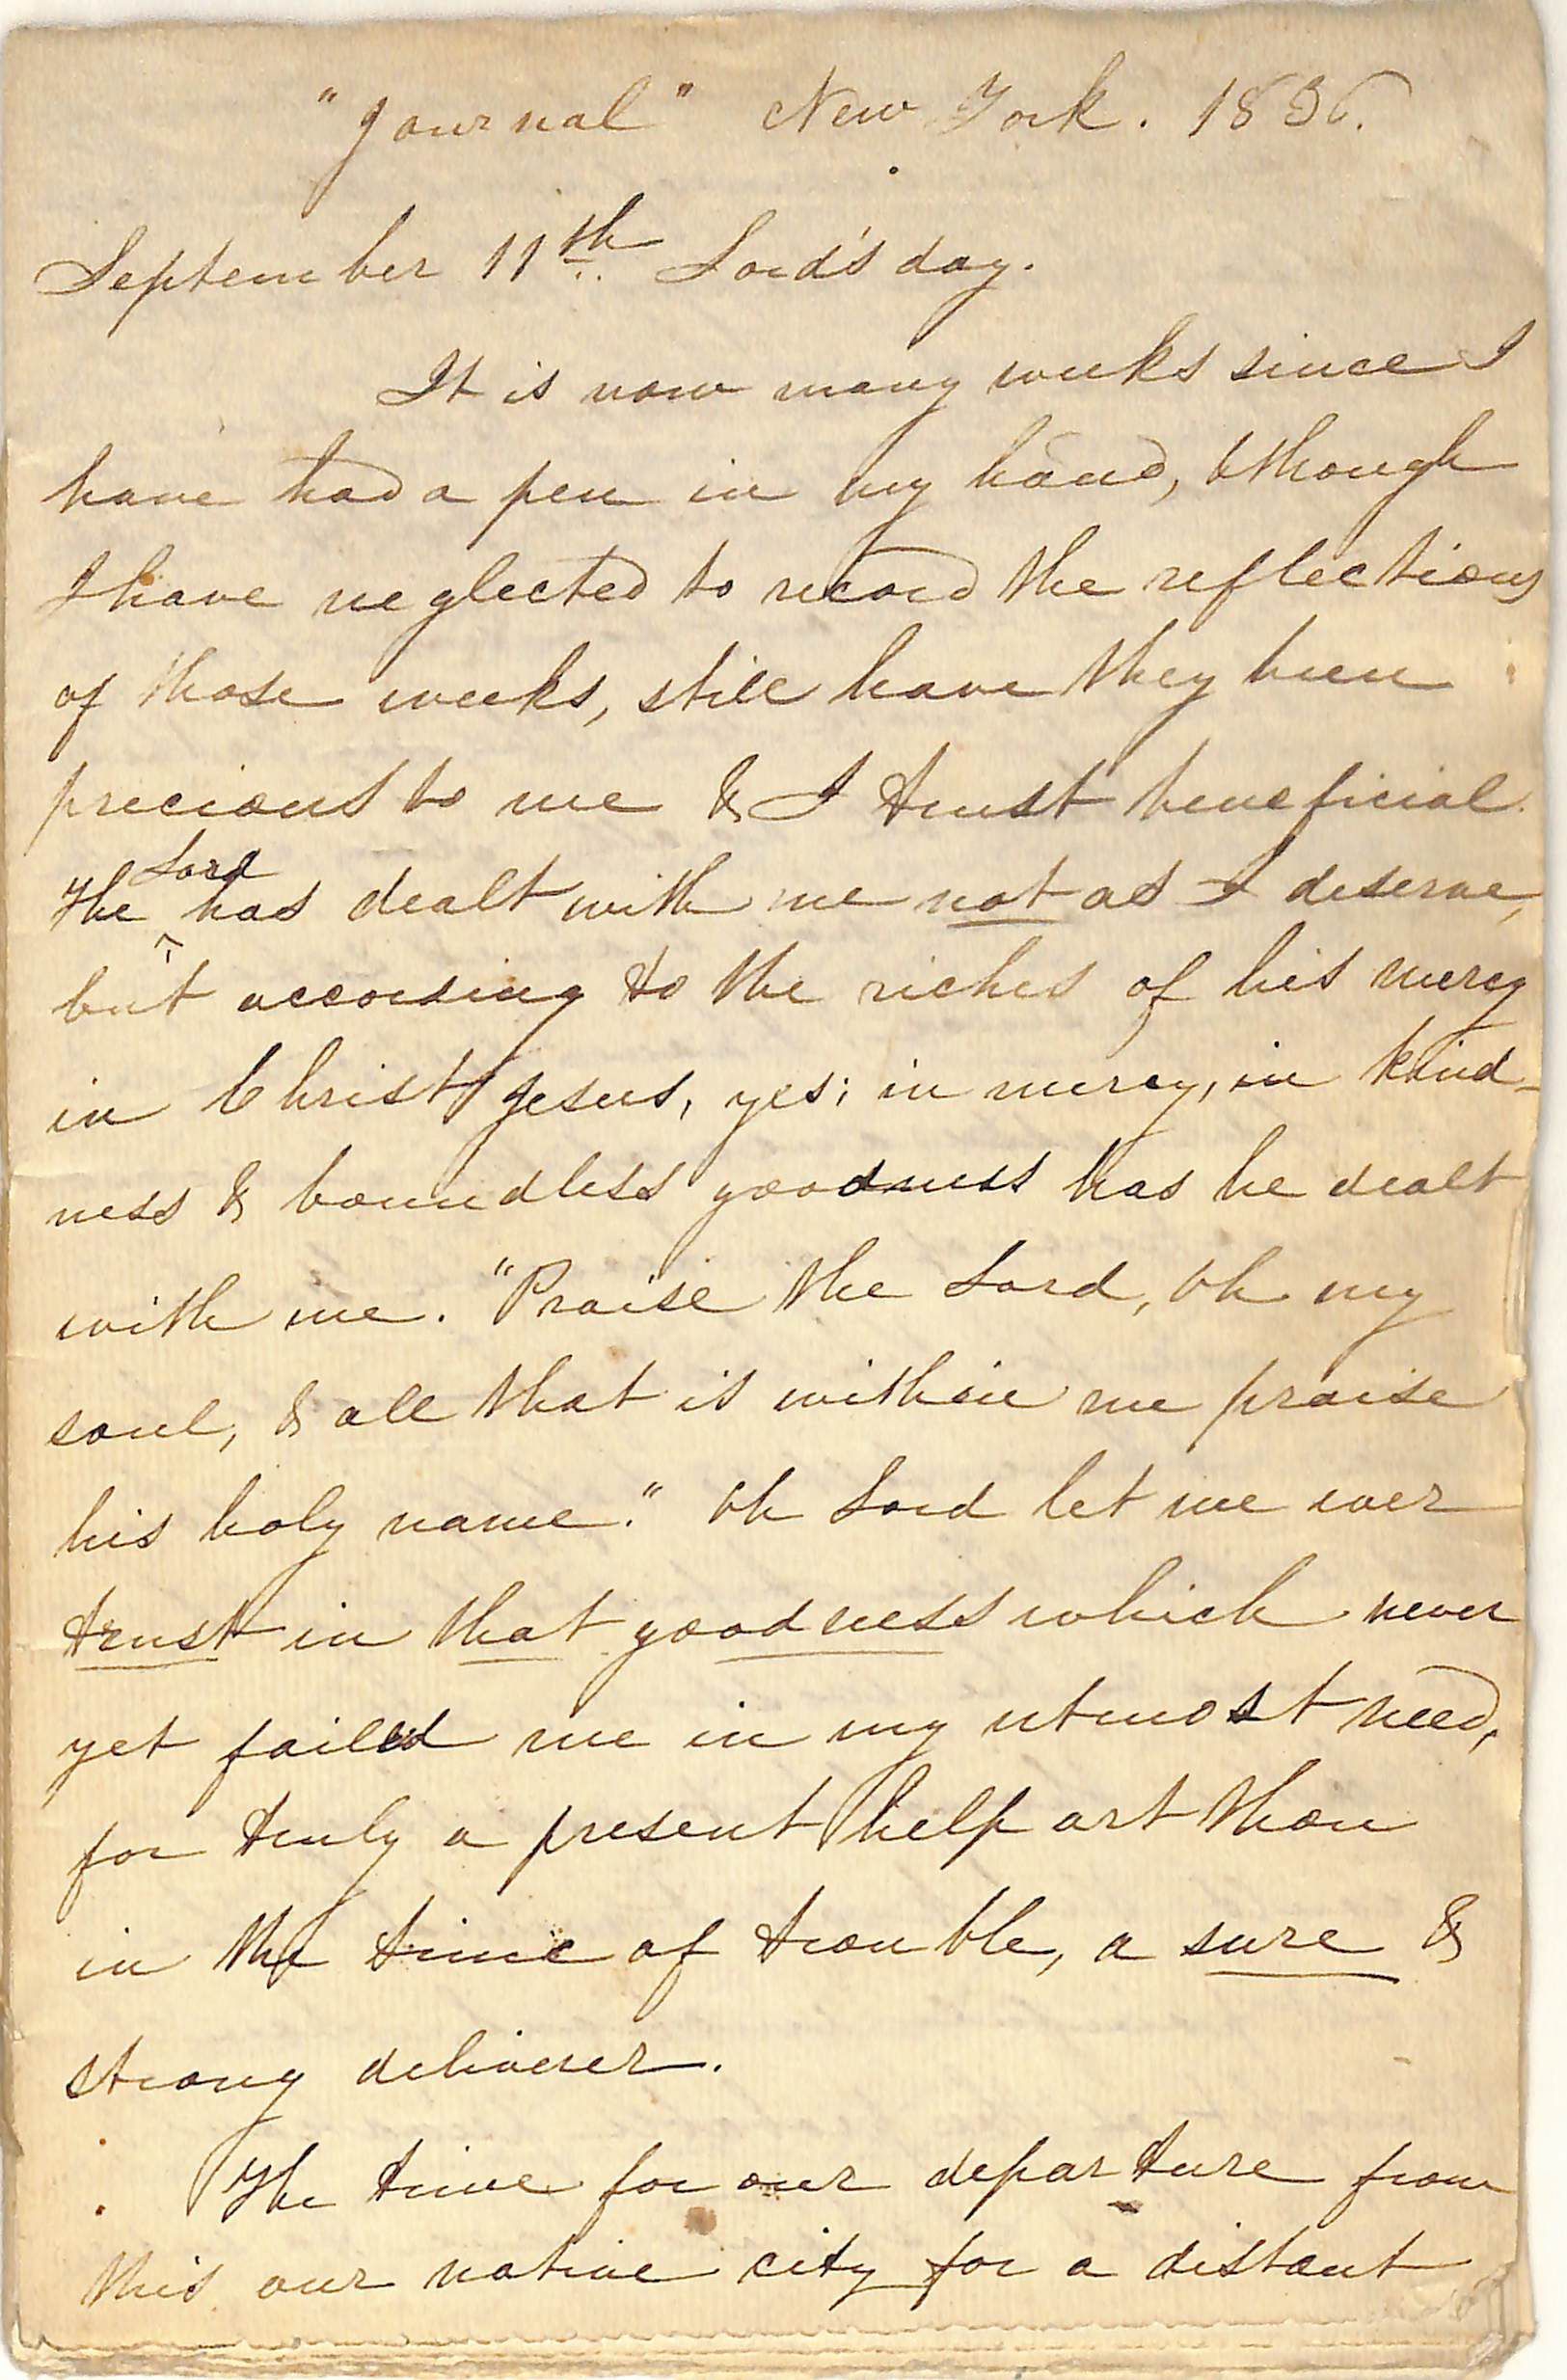 "Journal" New York. 1836.
September 11th Lord's day.
It is now many weeks since I
have had a pen in my hand, & though
I have neglected to record the reflections
of those weeks, still have they been
precious to me & I trust beneficial.
The Lord has dealt with me not as I deserve,
but according to the riches of his mercy
in Christ Jesus, yes; in mercy, in kind-
ness & boundless goodness has he dealt
with me. "Praise the Lord, Oh my
soul, & all that is within me praise
his holy name." Oh Lord let me ever
trust in that goodness which never
yet failed me in my utmost need,
for truly a present help art thou
in the time of trouble, a sure &
strong deliverer.
The time for our departure from
this our native city for a distant